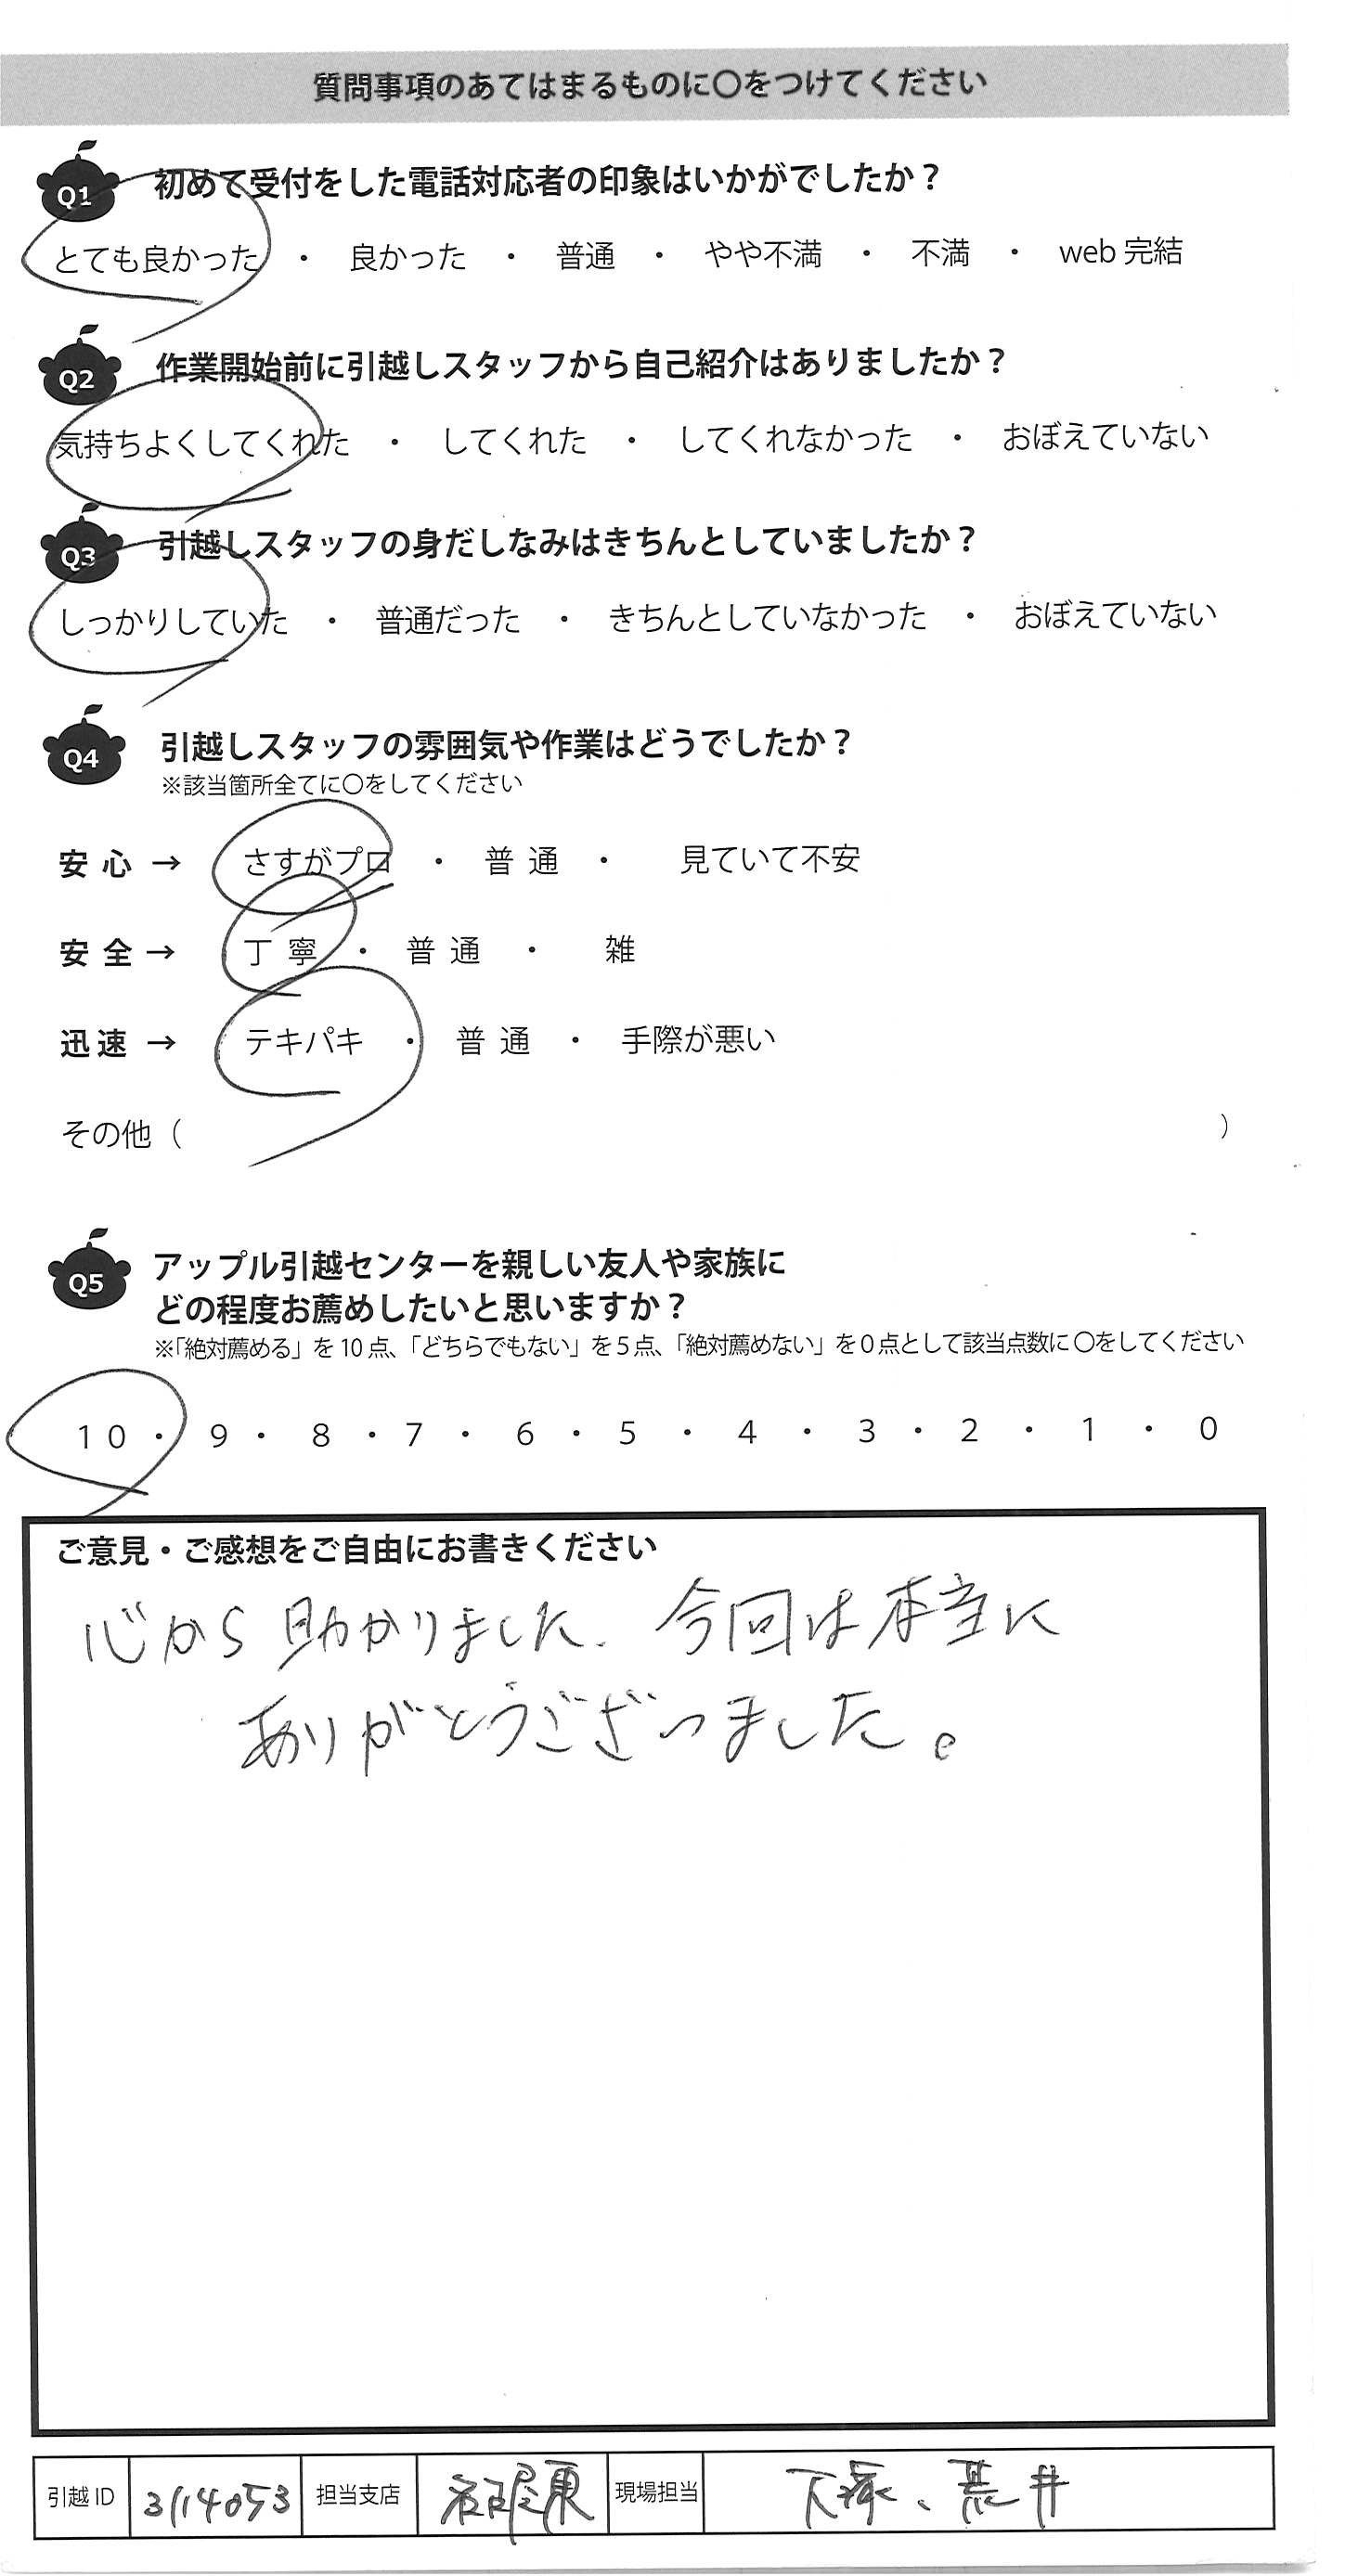 質問事項のあてはまるものに〇をつけてください
Q1 初めて受付をした電話対応者の印象はいかがでしたか？
とても良かった ・ 良かった ・ 普通 ・ やや不満 ・ 不満 ・ web 完結
Q2 作業開始前に引越しスタッフから自己紹介はありましたか？
気持ちよくしてくれた ・ してくれた ・ してくれなかった ・ おぼえていない
Q3 引越しスタッフの身だしなみはきちんとしていましたか？
しっかりしていた ・ 普通だった ・ きちんとしていなかった ・ おぼえていない
Q4 引越しスタッフの雰囲気や作業はどうでしたか？
※該当箇所全てに〇をしてください
安心 → さすがプロ ・ 普通 ・ 見ていて不安
安全 → 丁寧 ・ 普通 ・ 雑
迅速 → テキパキ ・ 普通 ・ 手際が悪い
その他（ ）
Q5 アップル引越センターを親しい友人や家族に
どの程度お薦めしたいと思いますか？
※「絶対薦める」を10点、「どちらでもない」を5点、「絶対薦めない」を0点として該当点数に〇をしてください
10 ・ 9 ・ 8 ・ 7 ・ 6 ・ 5 ・ 4 ・ 3 ・ 2 ・ 1 ・ 0
ご意見・ご感想をご自由にお書きください
心から助かりました. 今回は本当に
ありがとうございました。
引越ID 3114053 担当支店 現場担当